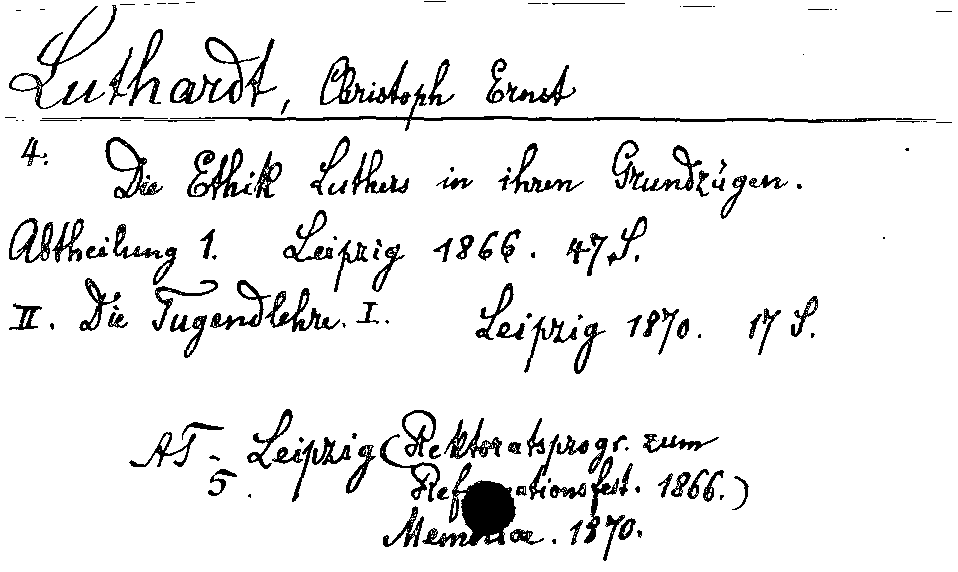 Luthardt, Christoph Ernst
4. Die Ethik Luthers in ihren Grundzügen.
Abtheilung 1. Leipzig 1866. 47 S.
II. Die Tugendlehre. I. Leipzig 1870. 17 S.
AT - Leipzig (Rektoratsprogr. zum
5. Reformationsfest. 1866.)
Memoriae. 1870.